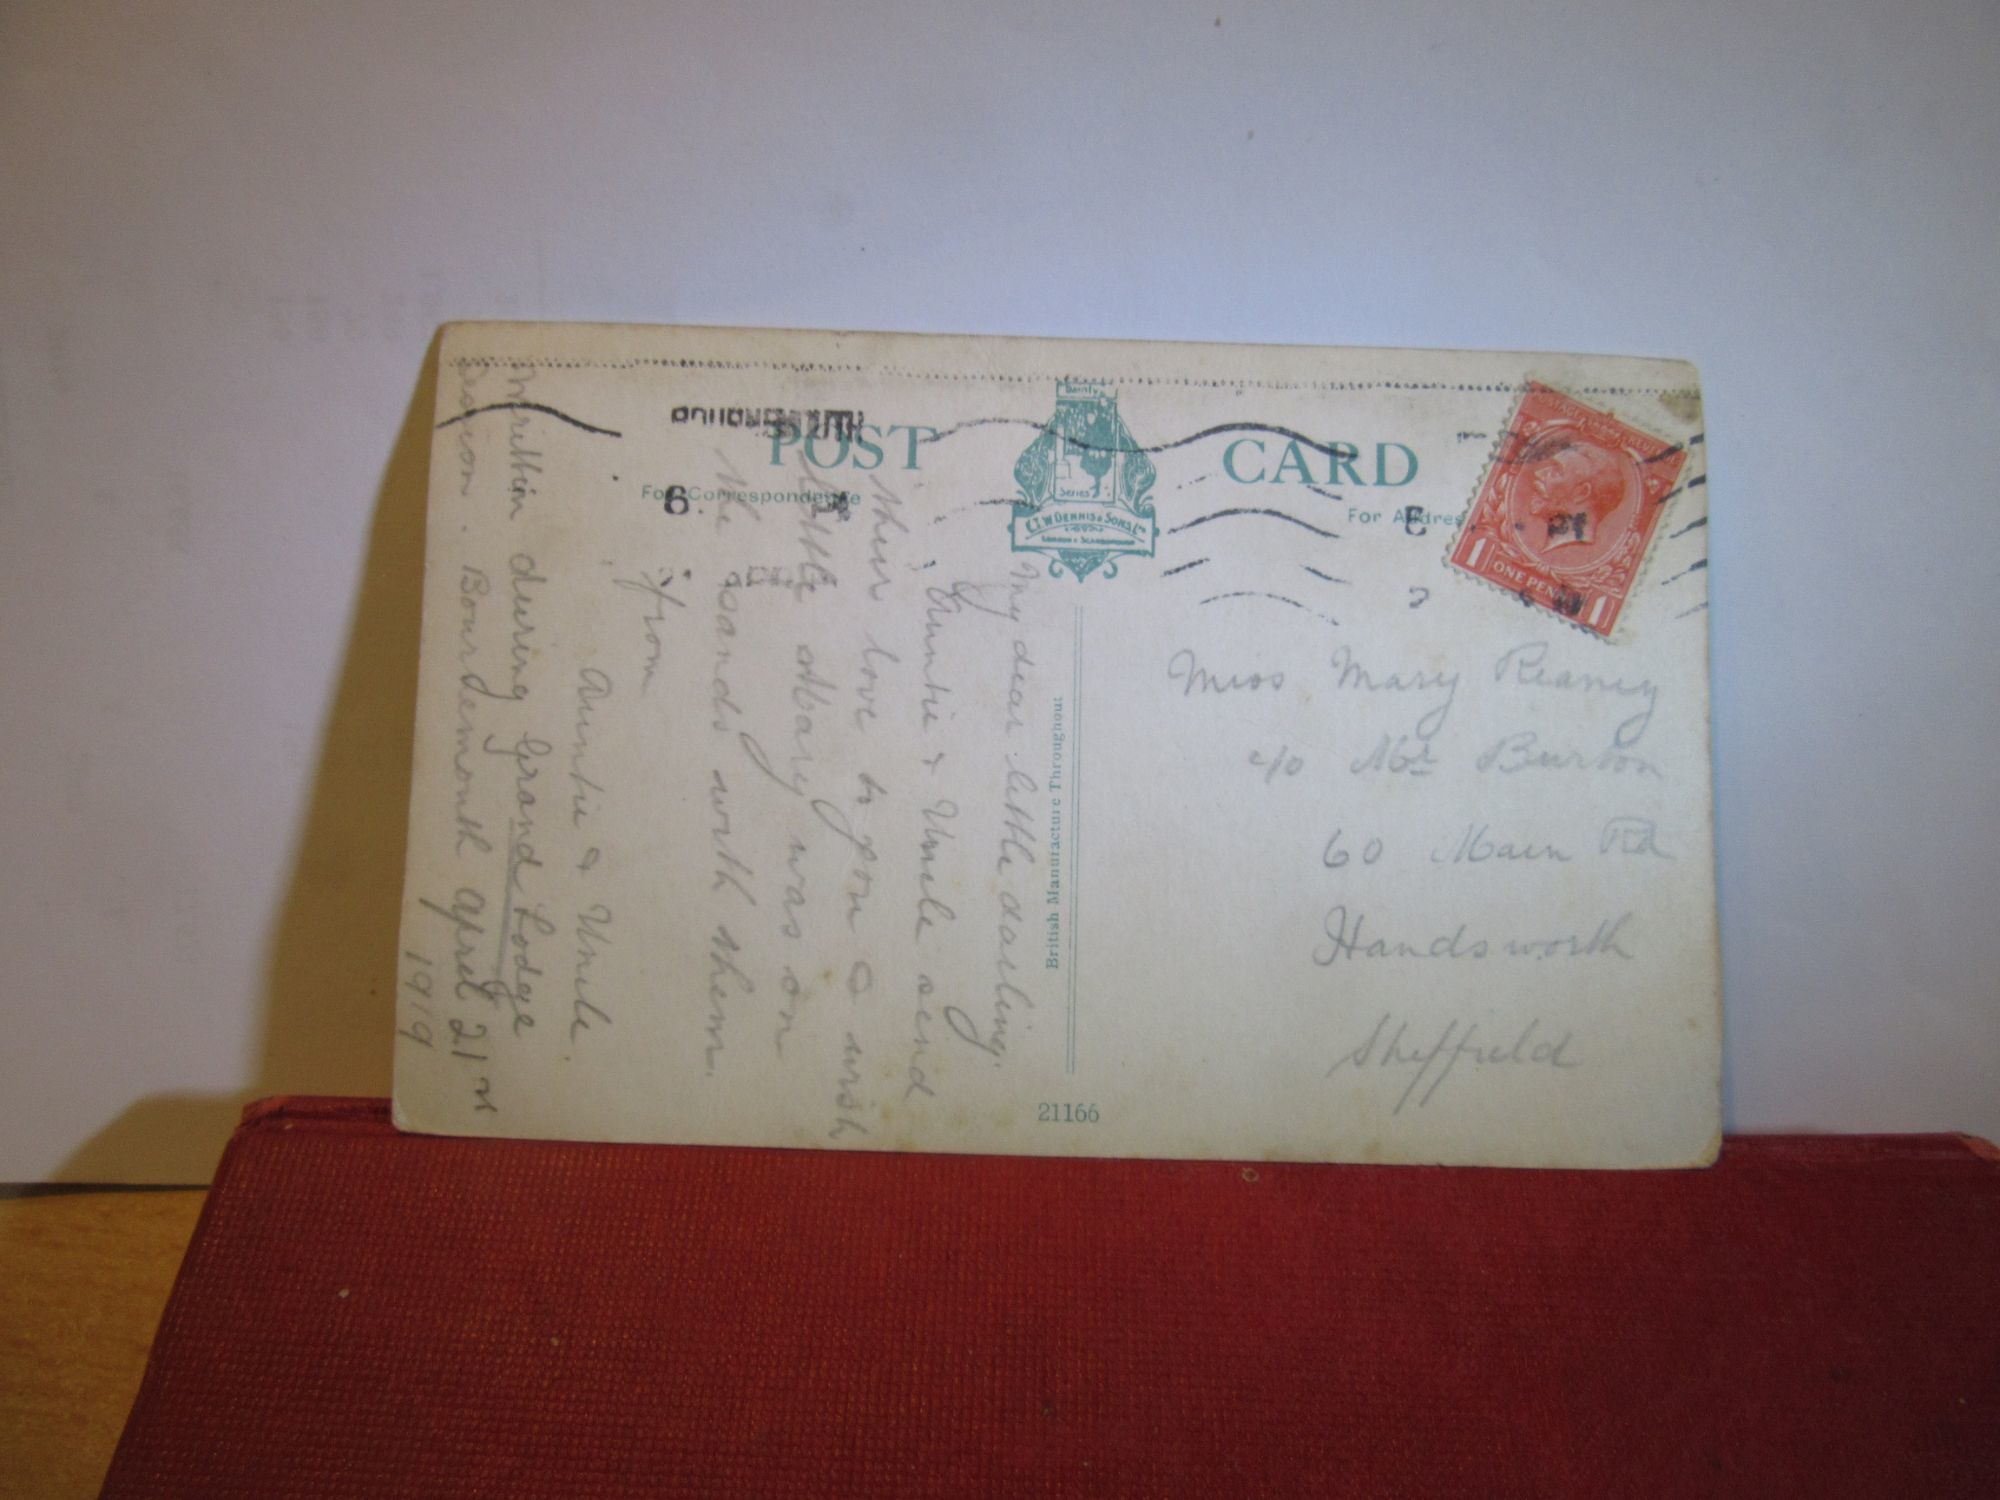 POST CARD
For Correspondence
For Address
Dainty
Series
E.T.W. DENNIS & SONS LTD
LONDON & SCARBOROUGH
British Manufacture Throughout
21166
1 ONE PENNY 1
My dear little darling.
Auntie & Uncle send
their love to you & wish
little Mary was on
the sands with them.
from
Auntie & Uncle.
Written during Grand Lodge
Session. Bournemouth April 21st
1919
Miss Mary Reaney
c/o Mr Burton
60 Main Rd
Handsworth
Sheffield